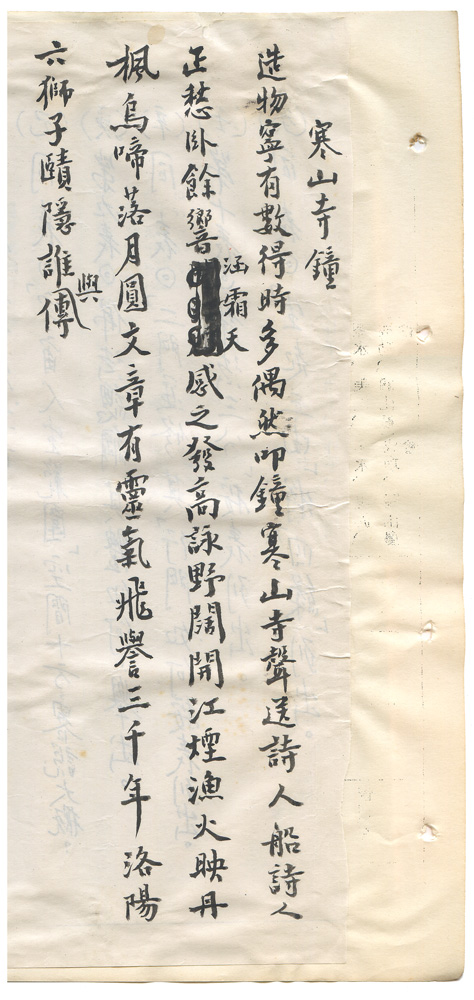 寒山寺鐘
造物寧有數得時多偶然叩鐘寒山寺聲送詩人船詩人
正愁臥餘響涵霜天感之發高詠野闊開江煙漁火映丹
楓烏啼落月圓文章有靈氣飛譽三千年洛陽
六獅子賾隱誰與傳